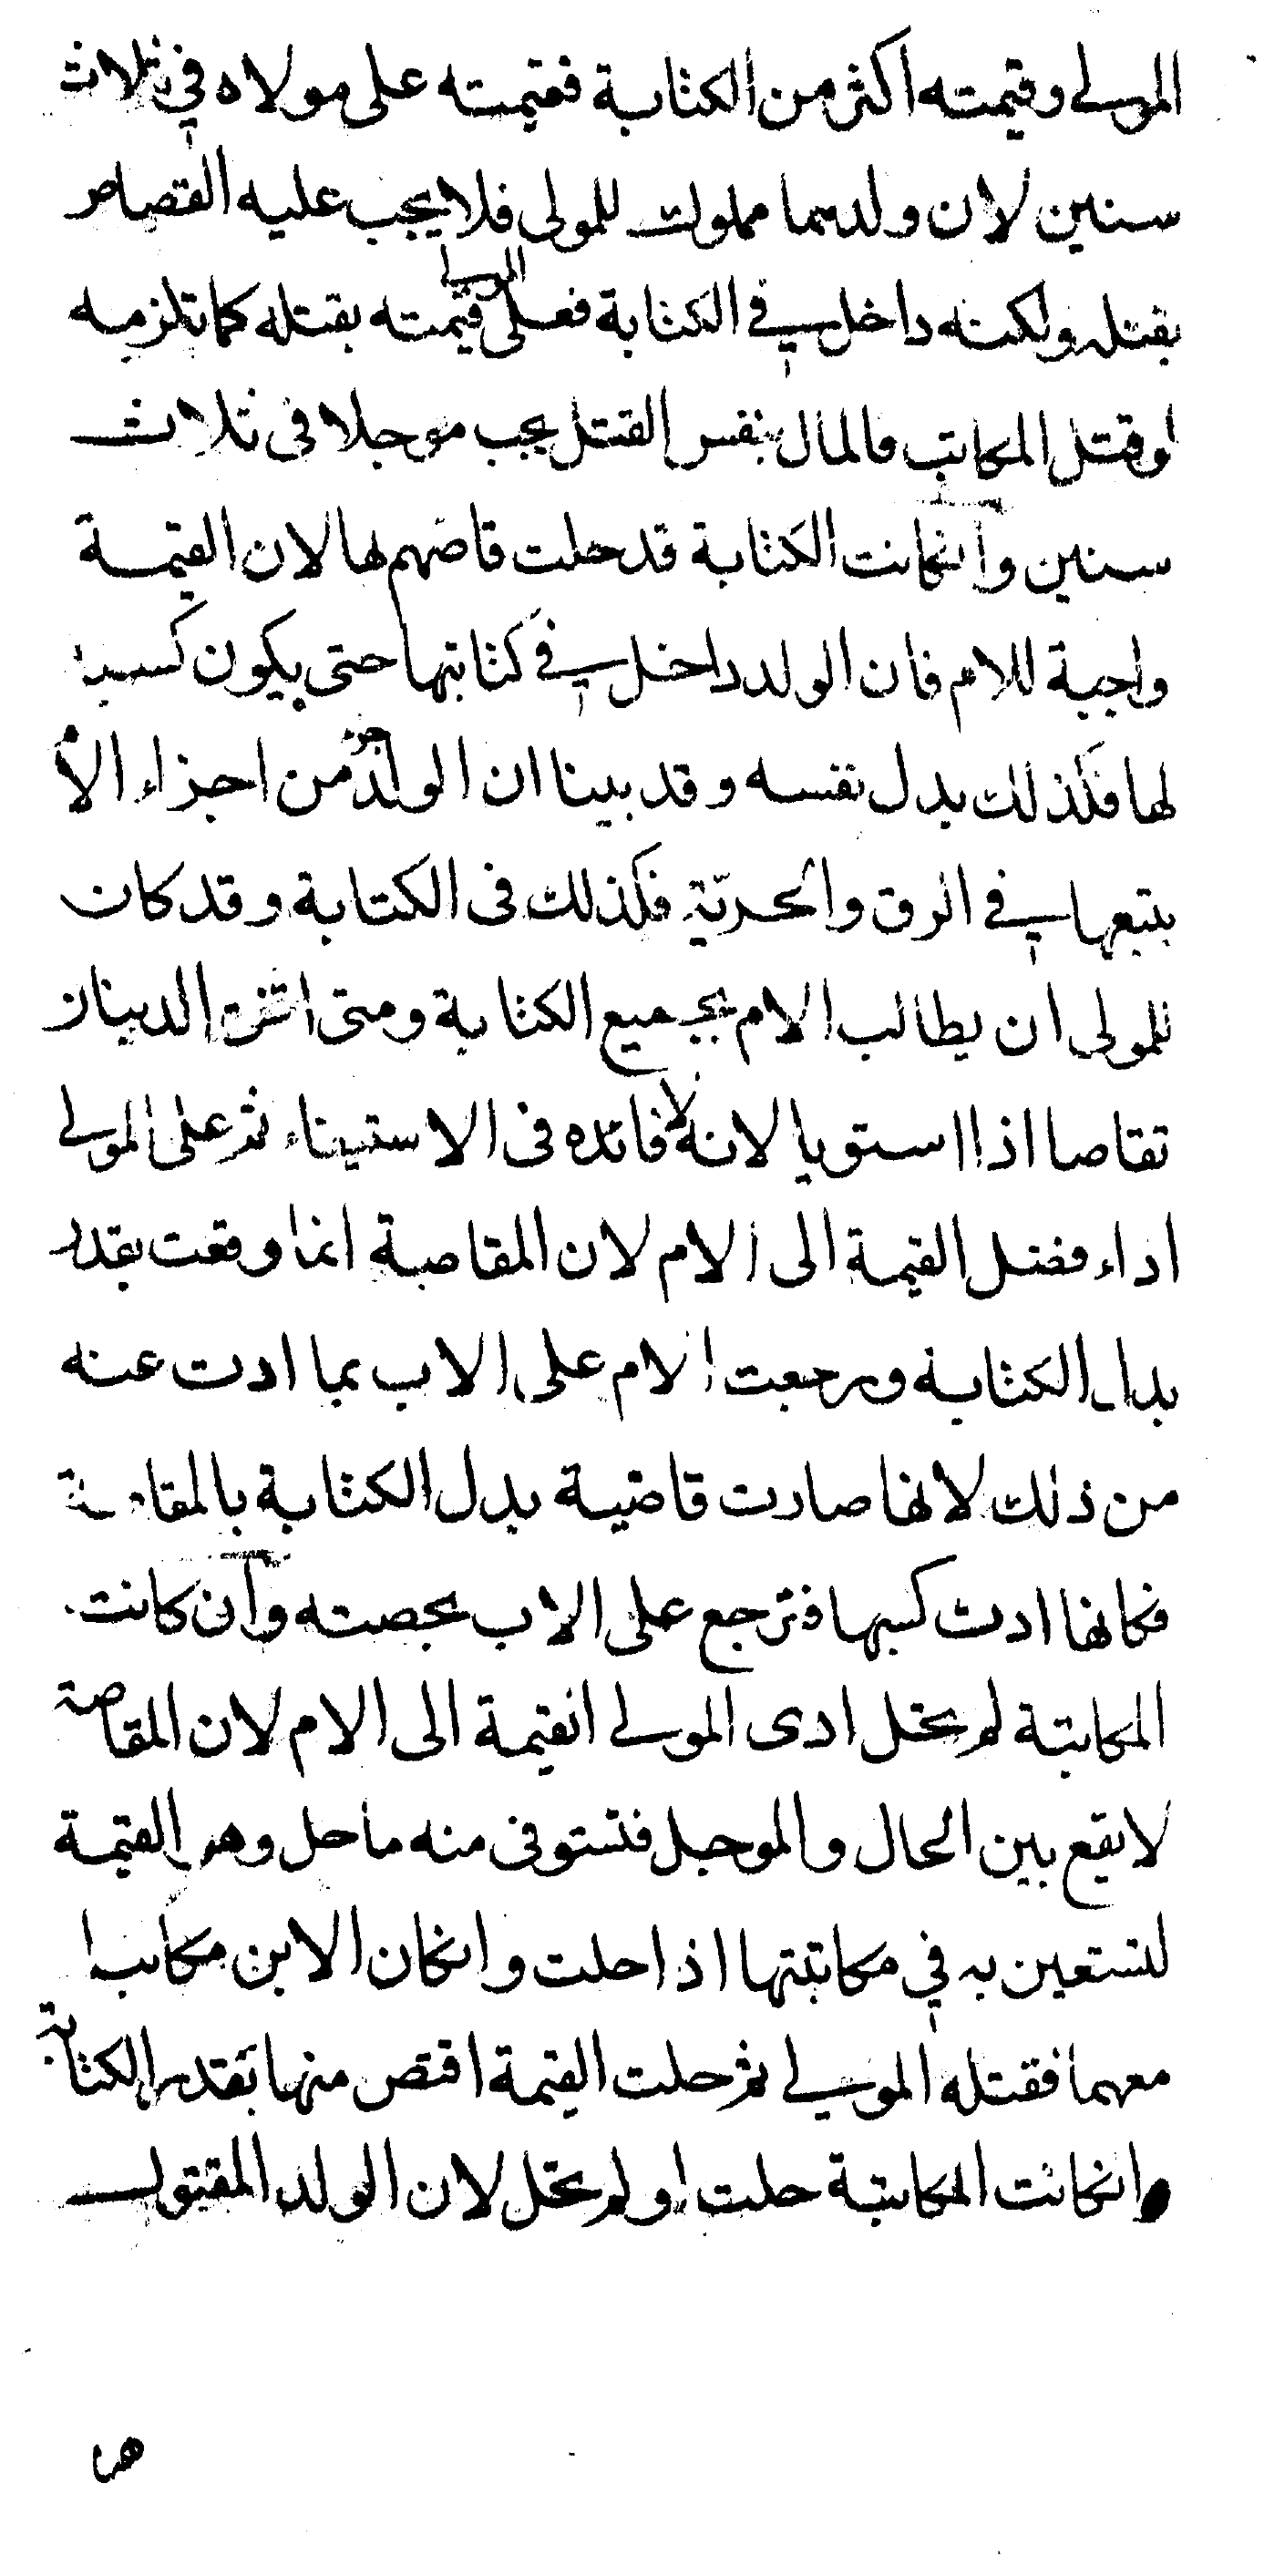 المولى وقيمته اكثر من الكتابة فقيمته على مولاه في ثلاث
سنين لان ولدهما مملوك للمولى فلا يجب عليه القصاص
بقتله ولكنه داخل في الكتابة فعلى المولى قيمته بقتله كما تلزمه
لو قتل المكاتب فالمال بنفس القتل يجب موجلا في ثلاث
سنين وانكانت الكتابة قد حلت قاصهم لها لان القيمة
واجبة للام فان الولد داخل في كتابتها حتى يكون كسبه
لها فكذلك بدل نفسه وقد بينا ان الولد جزء من اجزاء الام
يتبعها في الرق والحرية فكذلك في الكتابة وقد كان
للمولى ان يطالب الام بجميع الكتابة ومتى الدينان
تقاصا اذا استويا لانه لا فائده في الاستيفاء ثم على المولى
اداء فضل القيمة الى الام لان المقاصة انما وقعت بقدر
بدل الكتابة ورجعت الام على الاب بما ادت عنه
من ذلك لانها صارت قاضية بدل الكتابة بالمقاصة
فكانها ادت كسبها فترجع على الاب بحصته وان كانت
المكاتبة لم تحل ادى المولى القيمة الى الام لان المقاصة
لا يقع بين الحال والموجل فتستوفى منه ما حل وهو القيمة
لتستعين به في مكاتبتها اذا حلت وانكان الابن مكاتبا
معهما فقتله المولى ثم حلت القيمة اقتص منها بقدر الكتابة
وانكانت المكاتبة حلت او لم تحل لان الولد المقتول